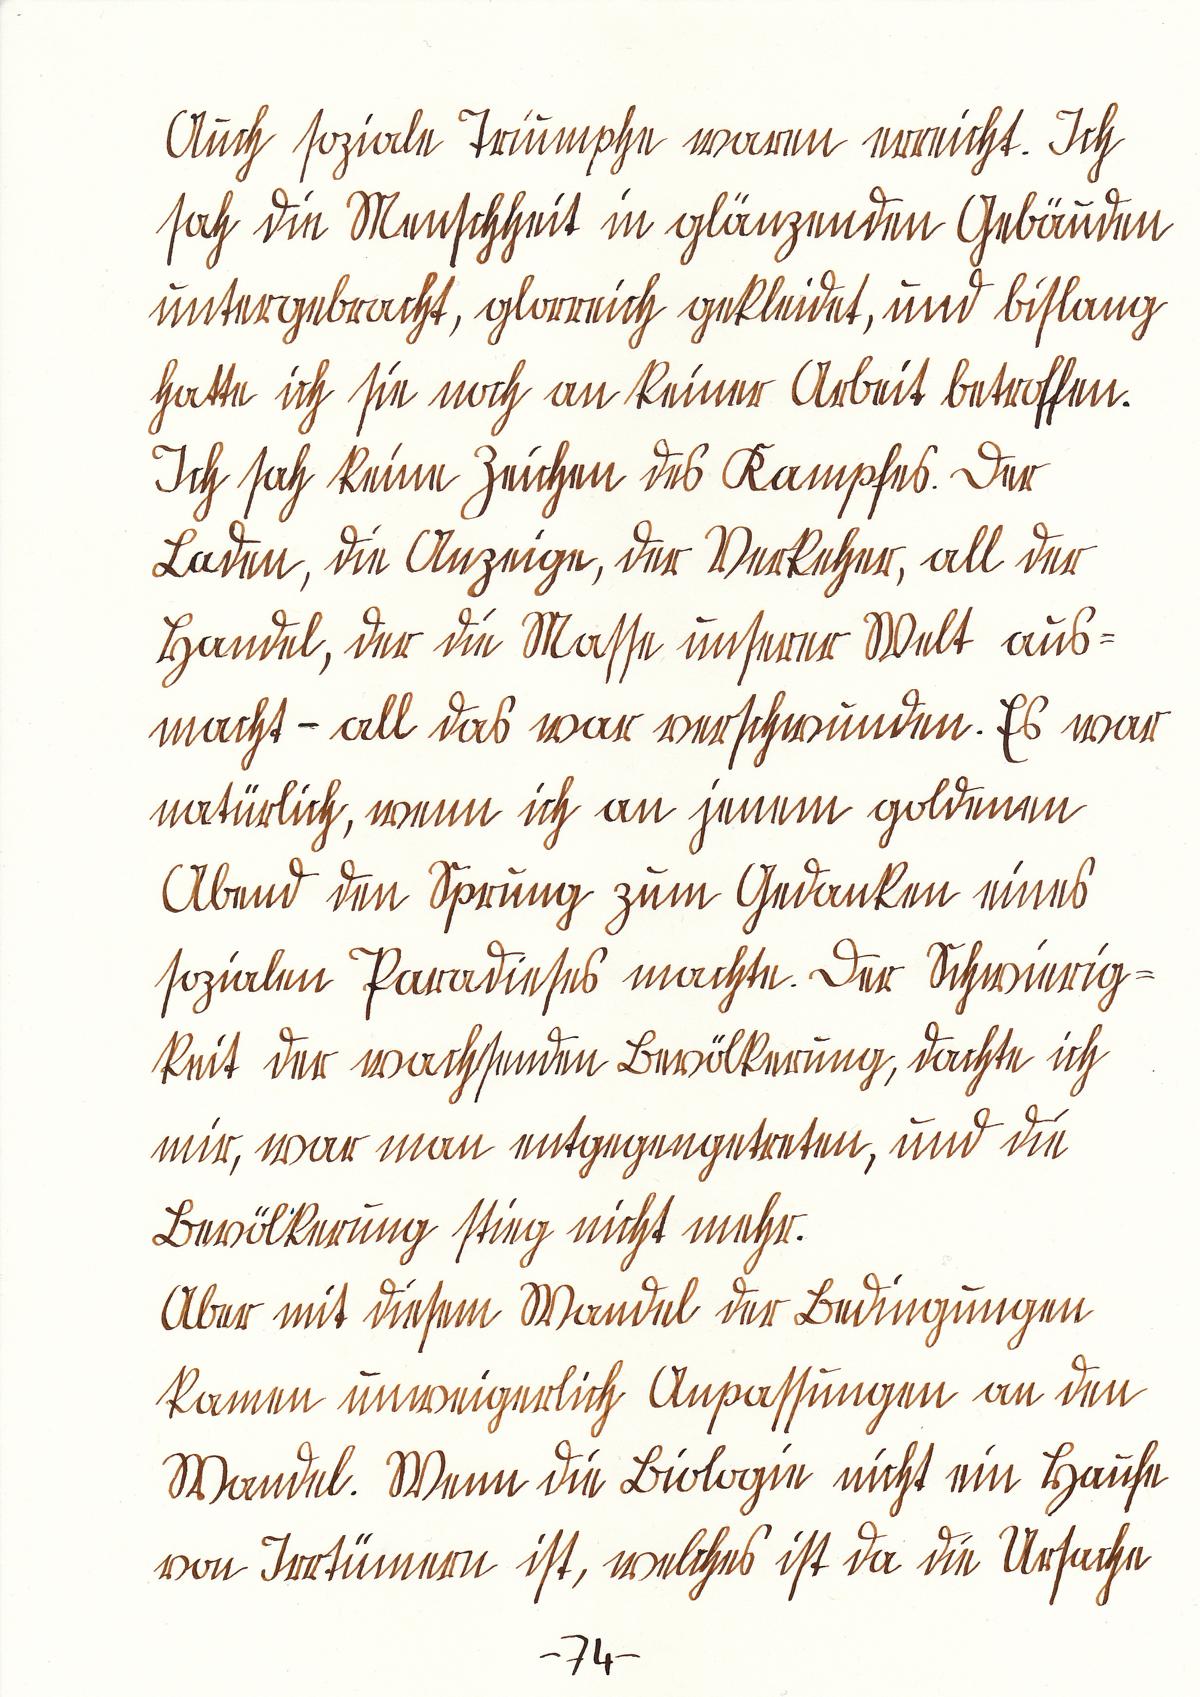 Auch soziale Triumphe waren erreicht. Ich
sah die Menschheit in glänzenden Gebäuden
untergebracht, glorreich gekleidet, und bislang
hatte ich sie noch an keiner Arbeit betroffen.
Ich sah keine Zeichen des Kampfes. Der
Laden, die Anzeige, der Verkeher, all der
Handel, der die Masse unserer Welt aus=
macht - all das war verschwunden. Es war
natürlich, wenn ich an jenem goldenen
Abend den Sprung zum Gedanken eines
sozialen Paradieses machte. Der Schwierig=
keit der wachsenden Bevölkerung, dachte ich
mir, war man entgegengetreten, und die
Bevölkerung stieg nicht mehr.
Aber mit diesem Wandel der Bedingungen
kamen unweigerlich Anpassungen an den
Wandel. Wenn die Biologie nicht ein Haufe
von Irrtümern ist, welches ist da die Ursache
-74-